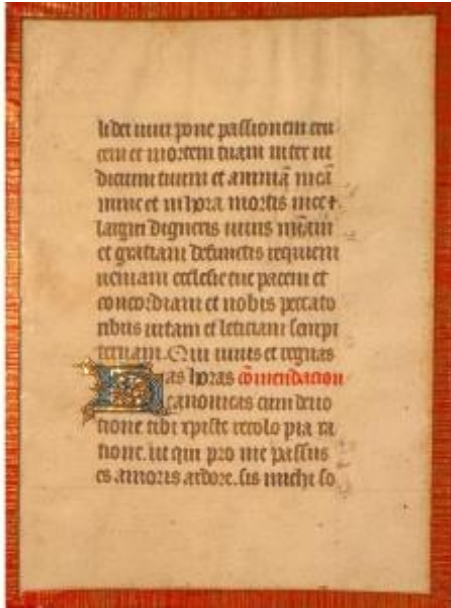 li dei uiui pone passionem cru
cem et mortem tuam inter iu
dicium tuum et animā meā
nunc et in hora mortis mee ⁊
largiri digneris uiuis mīam
et gratiam defunctis requiem
ueniam ecclesie tue pacem et
concordiam et nobis peccato
ribus uitam et leticiam sempi
ternam. Qui uiuis et regnas
Has horas cōmendacion
canonicas cum deuo
tione tibi xpiste recolo pia ra
tione. ut qui pro me passus
es amoris ardore. sis michi so